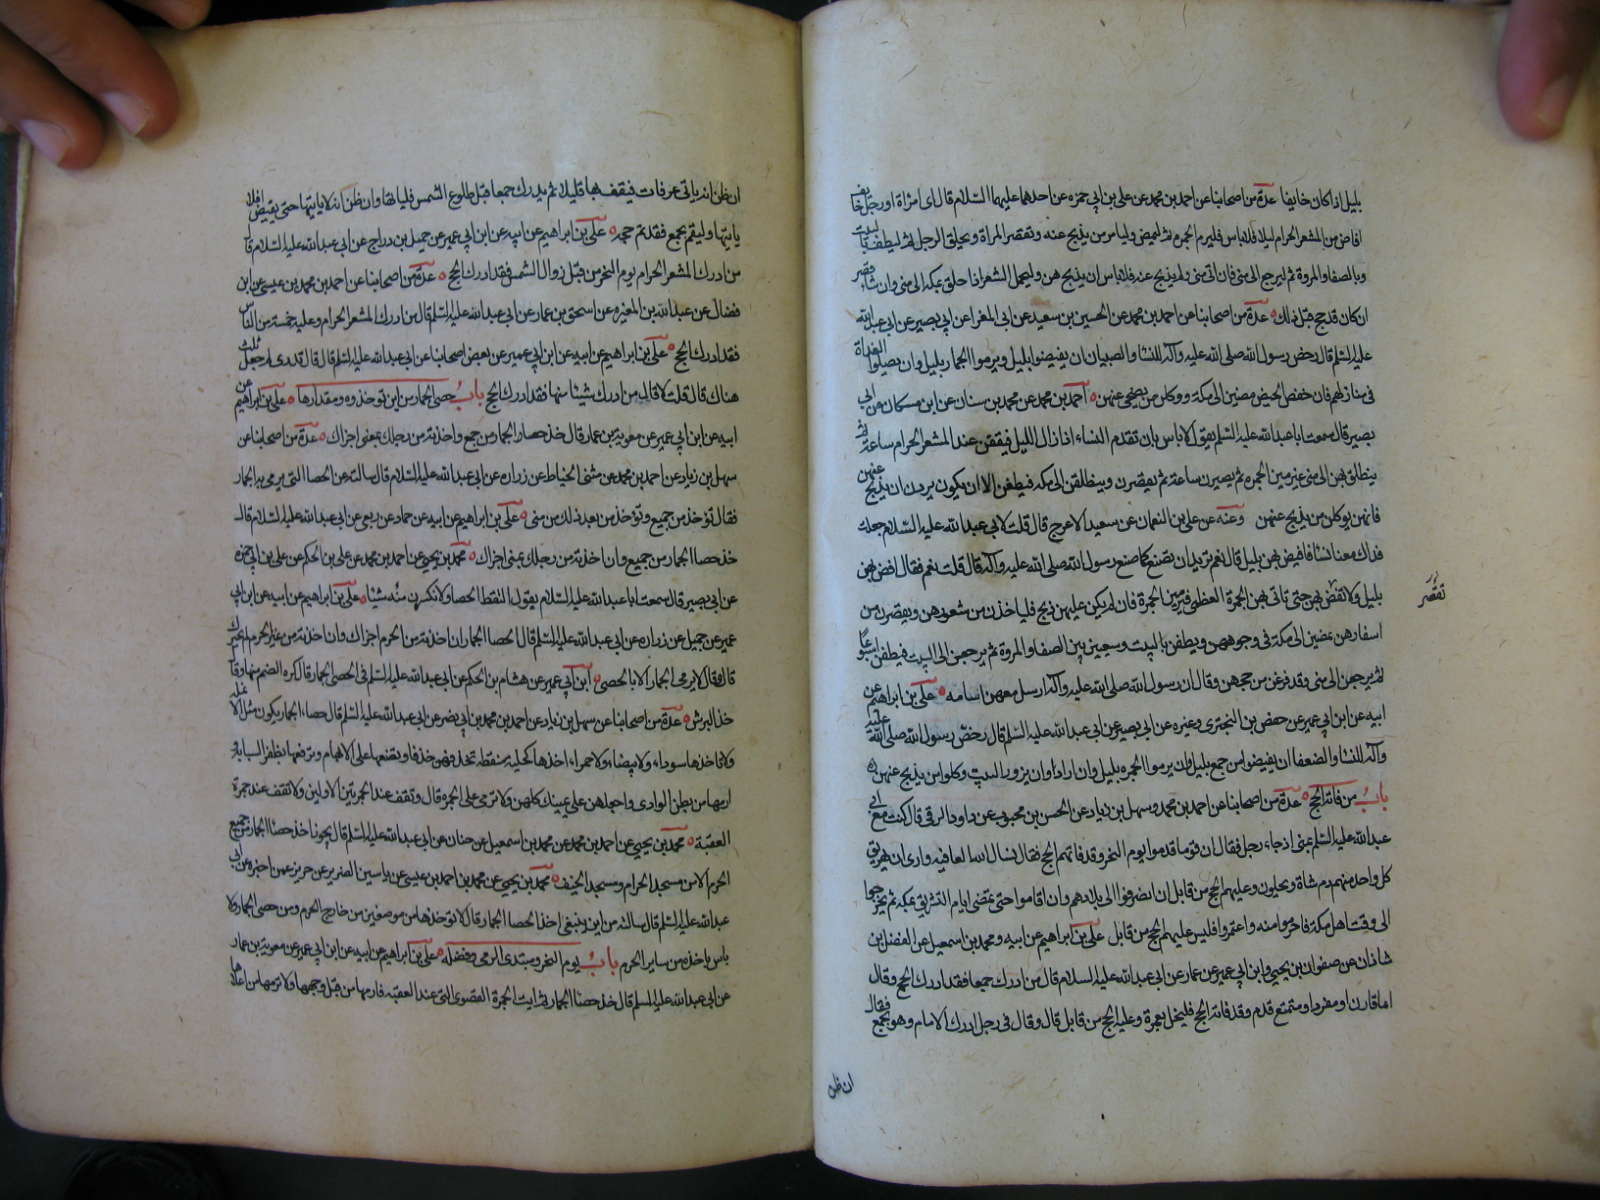 بليل اذا كان خايفا عدة من اصحابنا عن احمد بن محمد عن علي بن ابي حمزه عن احدهما عليهما السلام قال اى امراة او رجل خايف
افاض من المشعر الحرام ليلا فلا باس فليرم الجمره ثم ليمض وليامر من يذبح عنه وتقصر المراة ويحلق الرجل ثم ليطف بالبيت
وبالصفا والمروة ثم ليرجع الى منى فان اتى منى ولم يذبح عنه فلا باس ان يذبح هن وليحمل الشعر اذا حلق بمكة الى منى وان شاء قصر
ان كان قد حج قبل ذلك عدة من اصحابنا عن احمد بن محمد عن الحسين بن سعيد عن ابي المغرا عن ابي بصير عن ابي عبد الله
عليه السلم قال رخص رسول الله صلى الله عليه وآله للنسا والصبيان ان يفيضوا بليل ويرموا الجمار بليل وان يصلوا الغداة
في منازلهم فان خفن الحيض مضين الى مكة ووكلن من يضحى عنهن احمد بن محمد عن محمد بن سنان عن ابن مسكان عن ابي
بصير قال سمعت ابا عبد الله عليه السلم يقول لا باس بان تقدم النساء اذا زال الليل فيقفن عند المشعر الحرام ساعة ثم
ينطلق بهن الى منى فيرمين الجمره ثم يصبرن ساعة ثم يقصرن وينطلقن الى مكه فيطفن الا ان يكون يردن ان يذبح عنهن
فانهن يوكلن من يذبح عنهن وعنه عن علي بن النعمان عن سعيد الاعرج قال قلت لابي عبد الله عليه السلام جعلت
فداك معنا نسا فافيض بهن بليل قال نعم تريد ان تصنع كما صنع رسول الله صلى الله عليه وآله قال قلت نعم فقال افض بهن
بليل ولا تفض بهن حتى تقف بهن الجمرة العظمى فيرمين الجمرة فان لم يكن عليهن ذبح فلياخذن من شعورهن ويقصرن من
تقصر
اظفارهن ثم يمضين الى مكة في وجوههن ويطفن بالبيت ويسعين بين الصفا والمروة ثم يرجعن الى البيت فيطفن اسبوعا
ثم يرجعن الى منى وقد فرغن من حجهن وقال ان رسول الله صلى الله عليه وآله ارسل معهن اسامه علي بن ابراهيم عن
ابيه عن ابن ابي عمير عن حفص بن البخترى وغيره عن ابي بصير عن ابي عبد الله عليه السلم قال رخص رسول الله صلى الله عليه
وآله للنسا والضعفا ان يفيضوا من جمع بليل وان يرموا الجمره بليل وان ارادوا ان يزوروا البيت وكلوا من يذبح عنهن
باب من فاته الحج عدة من اصحابنا عن احمد بن محمد وسهل بن زياد عن الحسن بن محبوب عن داود الرقي قال كنت مع ابي
عبد الله عليه السلم بمنى اذ جاء رجل فقال ان قوما قدموا يوم النحر وقد فاتهم الحج فقال نسال الله العافيه وارى ان يهريق
كل واحد منهم دم شاة ويحلون وعليهم الحج من قابل ان انصرفوا الى بلادهم وان اقاموا حتى تمضى ايام التشريق بمكه ثم يخرجوا
الى وقت اهل مكة فاحرموا منه واعتمروا فليس عليهم الحج من قابل علي بن ابراهيم عن ابيه ومحمد بن اسمعيل عن الفضل بن
شاذان عن صفوان بن يحيى وابن ابي عمير عن عمار عن ابي عبد الله عليه السلام قال من ادرك جمعا فقد ادرك الحج وقال
اما قارن او مفرد او متمتع قدم وقد فاته الحج فليحل بعمرة وعليه الحج من قابل قال وقال في رجل ادرك الامام وهو بجمع فقال
ان ظن
ان ظن انه ياتى عرفات فيقف بها قليلا ثم يدرك جمعا قبل طلوع الشمس فلياتها وان ظن انه لا ياتيها حتى يفيض فلا
ياتيها وليقم بجمع فقد تم حجه علي بن ابراهيم عن ابيه عن ابن ابي عمير عن جميل بن دراج عن ابي عبد الله عليه السلام قال
من ادرك المشعر الحرام يوم النحر من قبل زوال الشمس فقد ادرك الحج عدة من اصحابنا عن احمد بن محمد بن عيسى عن ابن
فضال عن عبد الله بن المغيره عن اسحق بن عمار عن ابي عبد الله عليه السلم قال من ادرك المشعر الحرام وعليه خمسة من الناس
فقد ادرك الحج علي بن ابراهيم عن ابيه عن ابن ابي عمير عن بعض اصحابنا عن ابي عبد الله عليه السلم قال قال تدرى لم جعل ثلث
هناك قال قلت لا قال من ادرك شيئا منها فقد ادرك الحج باب حصى الجمار من اين توخذ وه ومقدارها علي بن ابراهيم عن
ابيه عن ابن ابي عمير عن معوية بن عمار قال خذ حصا الجمار من جمع واخذته من رحلك بمنى اجزاك عدة من اصحابنا عن
سهل بن زياد عن احمد بن محمد عن مثنى الحناط عن زراره عن ابي عبد الله عليه السلام قال سالته عن الحصا التى يرمى بها الجمار
فقال توخذ من جميع وتوخذ من بعد ذلك من منى علي بن ابراهيم عن ابيه عن حماد عن ربعى عن ابي عبد الله عليه السلام قال
خذ حصا الجمار من جميع وان اخذته من رحلك بمنى اجزاك محمد بن يحيى عن احمد بن محمد عن علي بن الحكم عن علي بن ابي حمزه
عن ابي بصير قال سمعت ابا عبد الله عليه السلام يقول التقط الحصا ولا تكسرن منه شيئا علي بن ابراهيم عن ابيه عن ابن ابي
عمير عن جميل عن زراره عن ابي عبد الله عليه السلم قال الحصا الجمار ان اخذته من الحرم اجزاك وان اخذته من غير الحرم لم يجزك
قال وقال لا يرمى الجمار الا بالحصى ابن ابي عمير عن هشام بن الحكم عن ابي عبد الله عليه السلم في الحصى الجمار قال كره الصم منها وقال
خذ البرش عدة من اصحابنا عن سهل بن زياد عن احمد بن محمد بن ابي نصر عن ابي عبد الله عليه السلم قال حصاء الجمار يكون مثل الانملة
ولا تاخذها سوداء ولا بيضاء ولا حمراء اخذها كحلية منقطه تخذفهن خذفا وتضعها على الابهام وترفعها بظفر السبابه
ارمها من بطن الوادى واجعلهن على يمينك كلهن ولا ترمى على الجمره قال وتقف عند الجمرتين الاولين ولا تقف عند جمرة
العقبة محمد بن يحيى عن احمد بن محمد عن محمد بن اسمعيل عن حنان عن ابي عبد الله عليه السلم قال يجوز اخذ حصا الجمار من جميع
الحرم الا من مسجد الحرام ومسجد الخيف محمد بن يحيى عن محمد بن احمد بن عيسى عن ياسين الضرير عن حريز عمن اخبره عن ابي
عبد الله عليه السلم قال سالته من اين ينبغى اخذ الحصا الجمار قال لا توخذها من موضعين من خارج الحرم ومن حصى الجمار ولا
باس باخذه من ساير الحرم باب يوم النحر ومبتدى الرمى وفضله علي بن ابراهيم عن ابيه عن ابن ابي عمير عن معوية بن عمار
عن ابي عبد الله عليه السلم قال خذ حصا الجمار ثم ايت الجمرة القصوى التى عند العقبه فارمها من قبل وجهها ولا ترمها من اعلاها